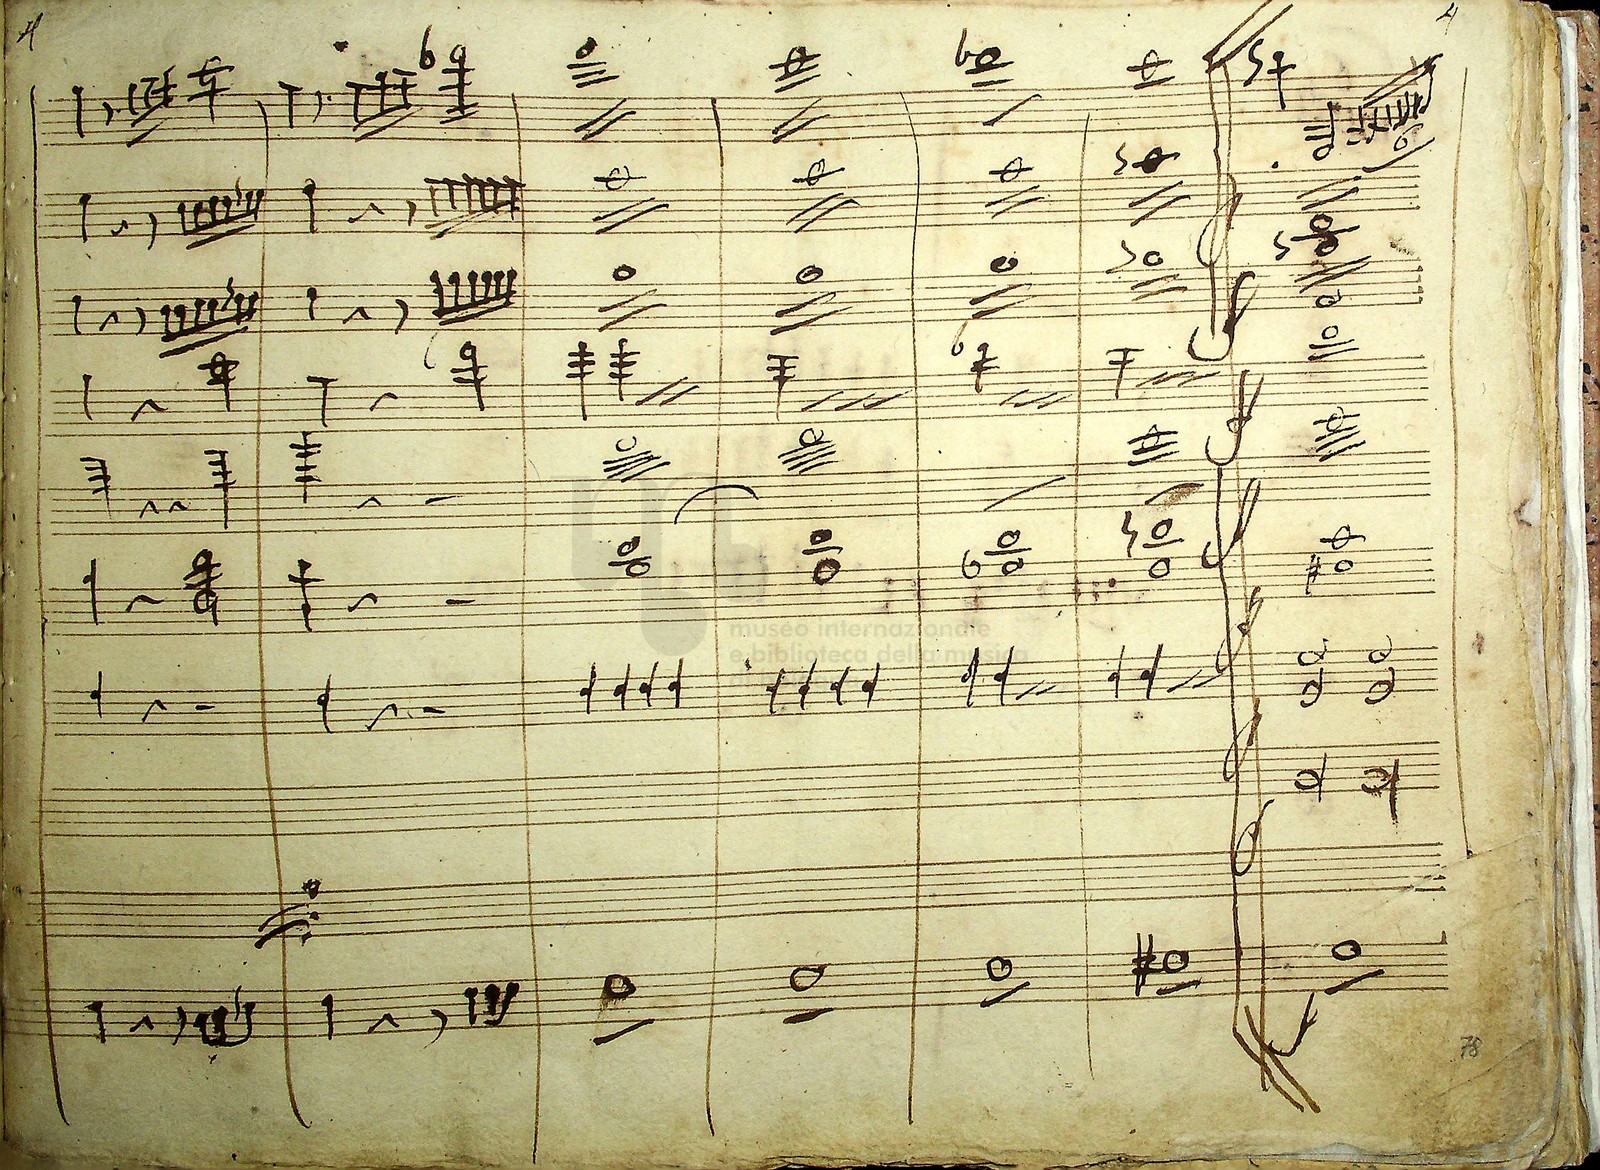 4
museo internazionale
e biblioteca della musica
78